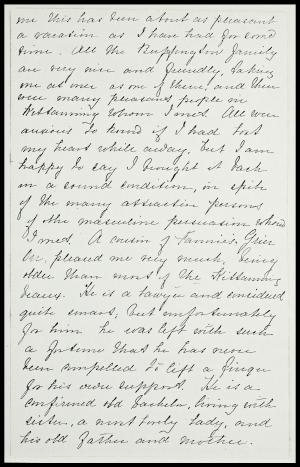 me this has been about as pleasant
a vacation as I have had for some
time. All the Buffington family
are very nice and friendly, taking
me as one as of them, and there
were many pleasant people in
Kittanning whom I met. All were
anxious to know if I had lost
my heart while away, but I am
happy to say I brought it back
in a sound condition, in spite
of the many attractive persons
of the masculine persuasion whom
I met. A cousin of Fannie's,
Orr, pleased me very much, being
older than most of the Kittanning
beaux. He is a lawyer and considered
quite smart; but unfortunately
for him he was left with such
a fortune that he has never
been compelled to lift a finger
for his own support. He is a
confirmed old bachelor, living with
sister, a most lovely lady, and
his old father and mother.